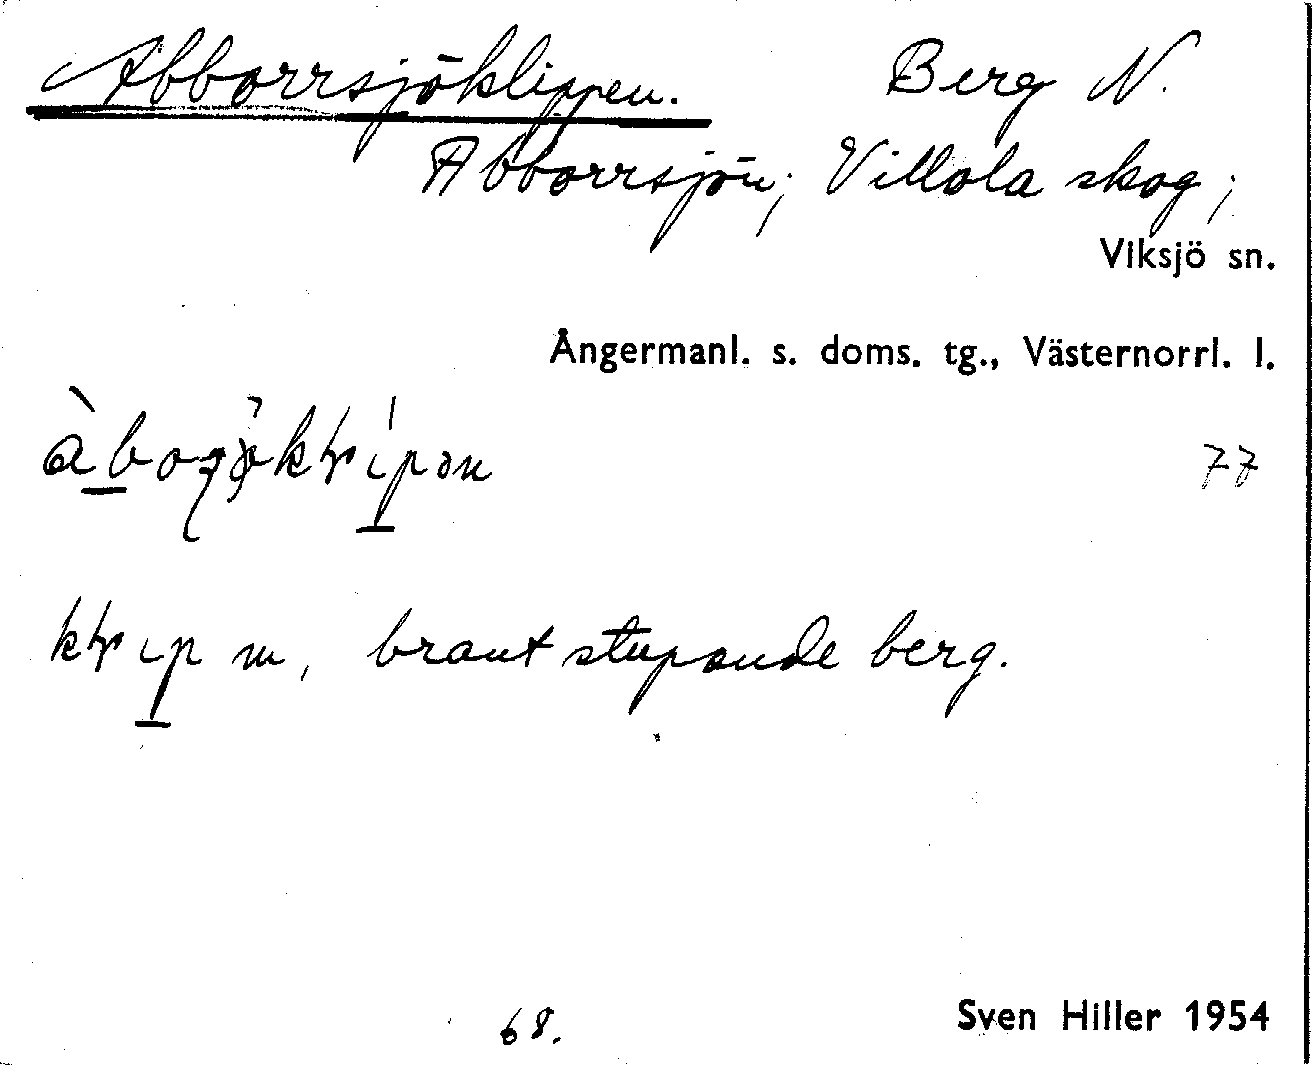 Abborrsjöklippen. Berg N.
Abborrsjön; Villola skog;
Viksjö sn.
Ångermanl. s. doms. tg., Västernorrl. l.
77
m, brant stupande berg.
68.
Sven Hiller 1954